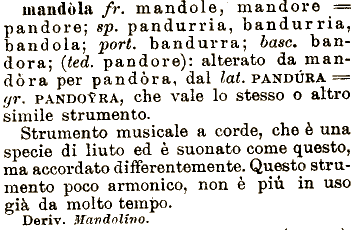 mandòla fr. mandole, mandore =
pandore; sp. pandurria, bandurria,
bandola; port. bandurra; basc. ban-
dora; (ted. pandore): alterato da man-
dòra per pandòra, dal lat. PANDÚRA =
gr. PANDOŸRA, che vale lo stesso o altro
simile strumento.
Strumento musicale a corde, che è una
specie di liuto ed è suonato come questo,
ma accordato differentemente. Questo stru-
mento poco armonico, non è piú in uso
già da molto tempo.
Deriv. Mandolino.